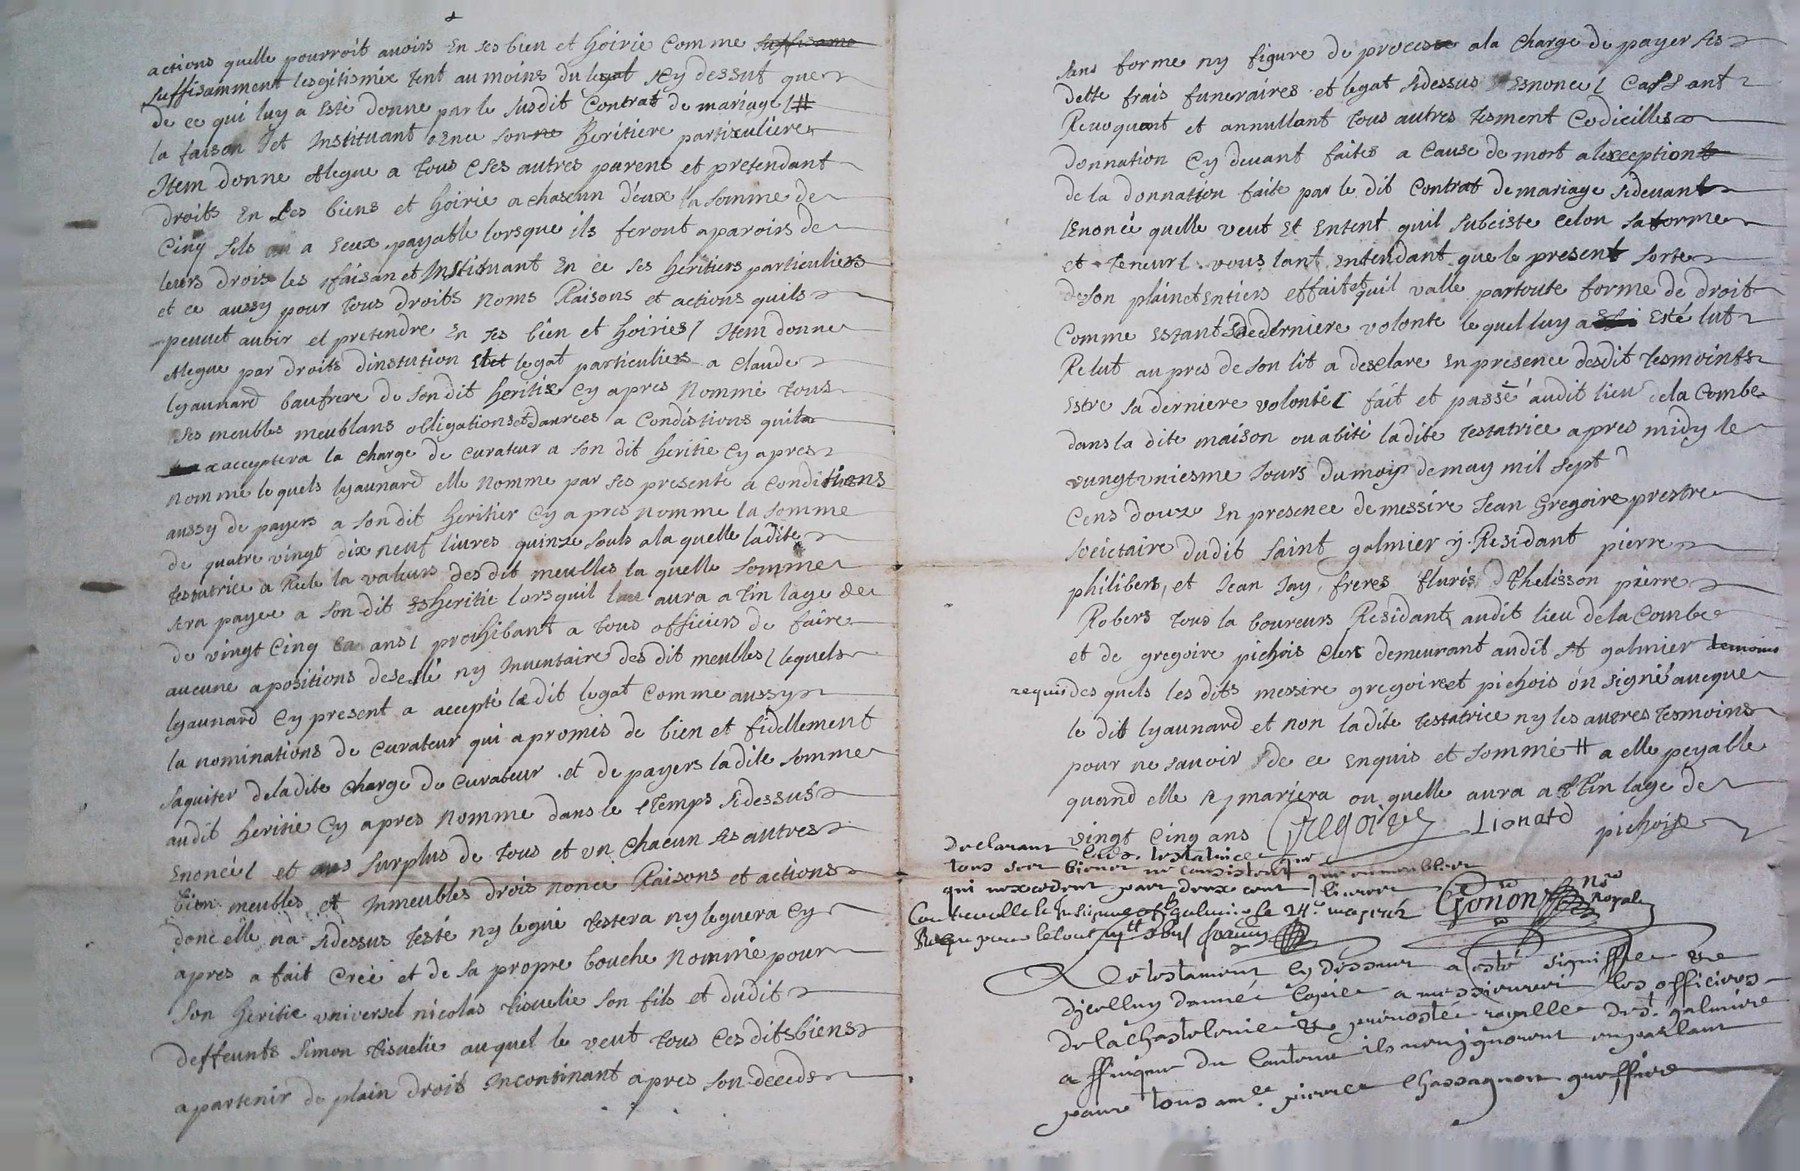 actions quelle pourroit avoirs En ses bien et hoirie Comme suffisame
suffisamment lesgitismée tent au moins du legat sy dessut que
de ce qui luy a Esté donne par le susdit Contrat de mariage / #
la faison et Instituant Ence son ne heritiere particuliere
Item donne et legue a tous Ses autres parent et pretendant
droits En Ses biens et hoirie a chascun d'eux la somme de
Cinq sols a eux payable lorsque ils feront aparoirs de
leurs drois les ffaisan et Instituant En ce ses heritiers particuliers
et ce aussy pour tous droits noms Raisons et actions quils
peuvet avbir et pretendre En ses bien et hoiries / Item donne
et legue par droits dinstution Et et legat particuliers a Claude
lyaunard baufrere de son dit heritie Cy apres nommé tous
ses meubles meublans obligations et danrees a Condistions quil
acceptera la charge de curateur a son dit heritié Cy apres
nomme lequels lyaunard elle nomme par ses presente a Conditions
aussy de payers a son dit heritier Cy apres nomme la somme
de quatre vingt dix neuf livres quinze souls a la quelle ladite
testatrice a la valeurs des dit meulles la quelle somme
sera payée a son dit heritie lorsquil aura atin lage de
de vingt Cinq ans / prohibant a tous officiers de faire
aucune apositions deselé ny Inventaire des dit meubles / lequels
lyaunard Cy present a accepté le dit legat Comme aussy
la nominations de Curateur qui apromis de bien et fidellement
saquiter de ladite charge de Curateur et de payers ladite somme
audit heritie Cy apres nomme dans le temps sidessus
Enoncé / et aus surplus de tous et un chacun ses autres
bien meubles et Inmeubles drois nonce Raisons et actions
donc elle na sidessus testé ny legué testera ny leguera Cy
apres a fait Creé et de sa propre bouche nommé pour
son heritie universel nicolas tisuelie son fils et dudit
deffeunts simon tisuelie auquel le veut tous Ces dits biens
apartenir de plain droits Incontinant apres son deceds
sans forme ny figure de proces a la charge de payer ses
dette frais funeraires et legat sidessus Enonce / Cassant
Revoquant et annullant tous autres tesment Codicilles
donnation Cy devant faites a Cause de mort a lexception
de la donnation faite par le dit Contrat de mariage sidevant
Enoncé quelle veut Et Entent quil subciste Celon sa forme
et teneur / voulant entendant que le present sorte
son plain et Entiers effait et quil valle partoute forme de droit
Comme Estant sa derniere volonte lequel luy a Esté lut
Relut au pres de son lit a desclare En presence desdit tesmoints
Estre sa derniere volonté / fait et passé audit lieu de la Combe
dans la dite maison ou abité ladite testatrice apres midy le
vungtuniesme Jours du mois de may mil sept
Cens douze En presence de messire Jean Gregoire prestre
sociétaire dudit saint galmier y Residant pierre
philibers, et Jean Jay, freres fluris Thelisson pierre
Robers tous la boureurs Residant, audit lieu de la Combe
et de gregoire pichois Clers demeurant audit st galmier temoins
requis des quels les dits messire gregoire et pichois on signé avecque
le dit lyaunard et non ladite testatrice ny les autres tesmoins
pour ne savoir de ce enquis et sommé # a elle peyable
quand elle se mariera ou quelle aura atin lage de
vingt Cinq ans Gregoire Lionard pichois
declarant ladite testatrice que
tous ses biens ne Consistent que en meubles
qui nexcedent pas deux cent livres
Controulle le galmier le 24e may 1712 Gonon Nre Royal
Le testament Cy dessus a esté signiffié
et dicelluy donné Copie a messieurs les officiers
de la Chastelenie et prevosté royalle de st galmier
affinque du Contenu ils nen ignorent en parlant
pour tous a me pierre Chassagnon greffier